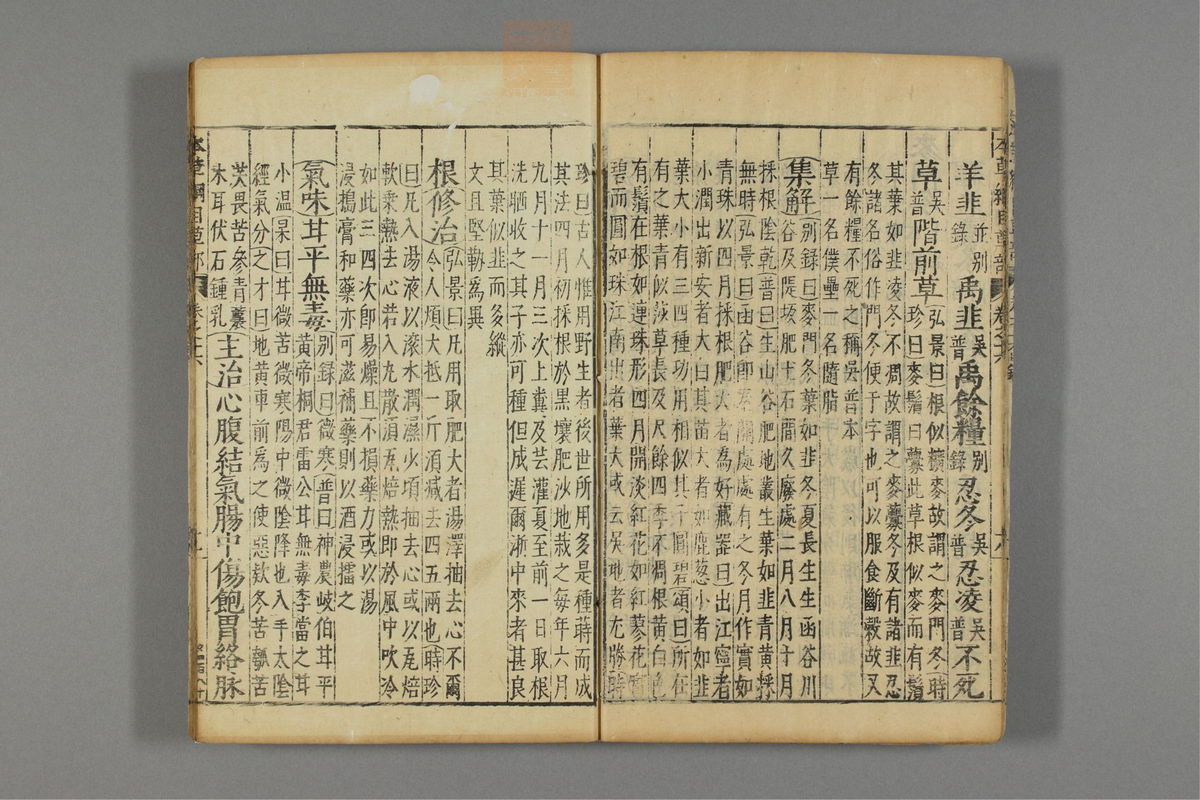 羊韭並別錄禹韭吳普禹餘糧別錄忍冬吳普忍凌吳普不死
草吳普階前草弘景曰根似穬麥故謂之麥門冬時
珍曰麥鬚曰虋此草根似麥而有鬚
其葉如韭凌冬不凋故謂之麥虋冬及有諸韭忍
冬諸名俗作門冬便于字也可以服食斷穀故又
有餘糧不死之稱吳普本
草一名僕壘一名隨脂
集解別錄曰麥門冬葉如韭冬夏長生生函谷川
谷及隄坂肥土石間久廢處二月八月十月
採根陰乾普曰生山谷肥地叢生葉如韭青黃採
無時弘景曰函谷即秦關處處有之冬月作實如
青珠以四月採根肥大者為好藏器曰出江寧者
小潤出新安者大白其苗大者如鹿葱小者如韭
葉大小有三四種功用相似其子圓碧頌曰所在
有之葉青似莎草長及尺餘四季不凋根黃白色
有鬚在根如連珠形四月開淡紅花如紅蓼花實
碧而圓如珠江南出者葉大或云吳地者尤勝時
珍曰古人惟用野生者後世所用多是種蒔而成
其法四月初採根於黑壤肥沙地栽之每年六月
九月十一月三次上糞及芸灌夏至前一日取根
洗晒收之其子亦可種但成遲爾浙中來者甚良
其葉似韭而多縱
文且堅韌為異
根修治弘景曰凡用取肥大者湯澤抽去心不爾
令人煩大抵一斤須減去四五兩也時珍
曰凡入湯液以滾水潤濕少頃抽去心或以瓦焙
軟乘熱去心若入丸散須瓦焙熱即於風中吹冷
如此三四次即易燥且不損藥力或以湯
浸搗膏和藥亦可滋補藥則以酒浸擂之
氣味甘平無毒別錄曰微寒普曰神農岐伯甘平
黃帝桐君雷公甘無毒李當之甘
小溫杲曰甘微苦微寒陽中微陰降也入手太陰
經氣分之才曰地黃車前為之使惡欵冬苦瓠苦
芺畏苦參青蘘
木耳伏石鍾乳主治心腹結氣腸中傷飽胃絡脉
本草綱目草部
卷之十六